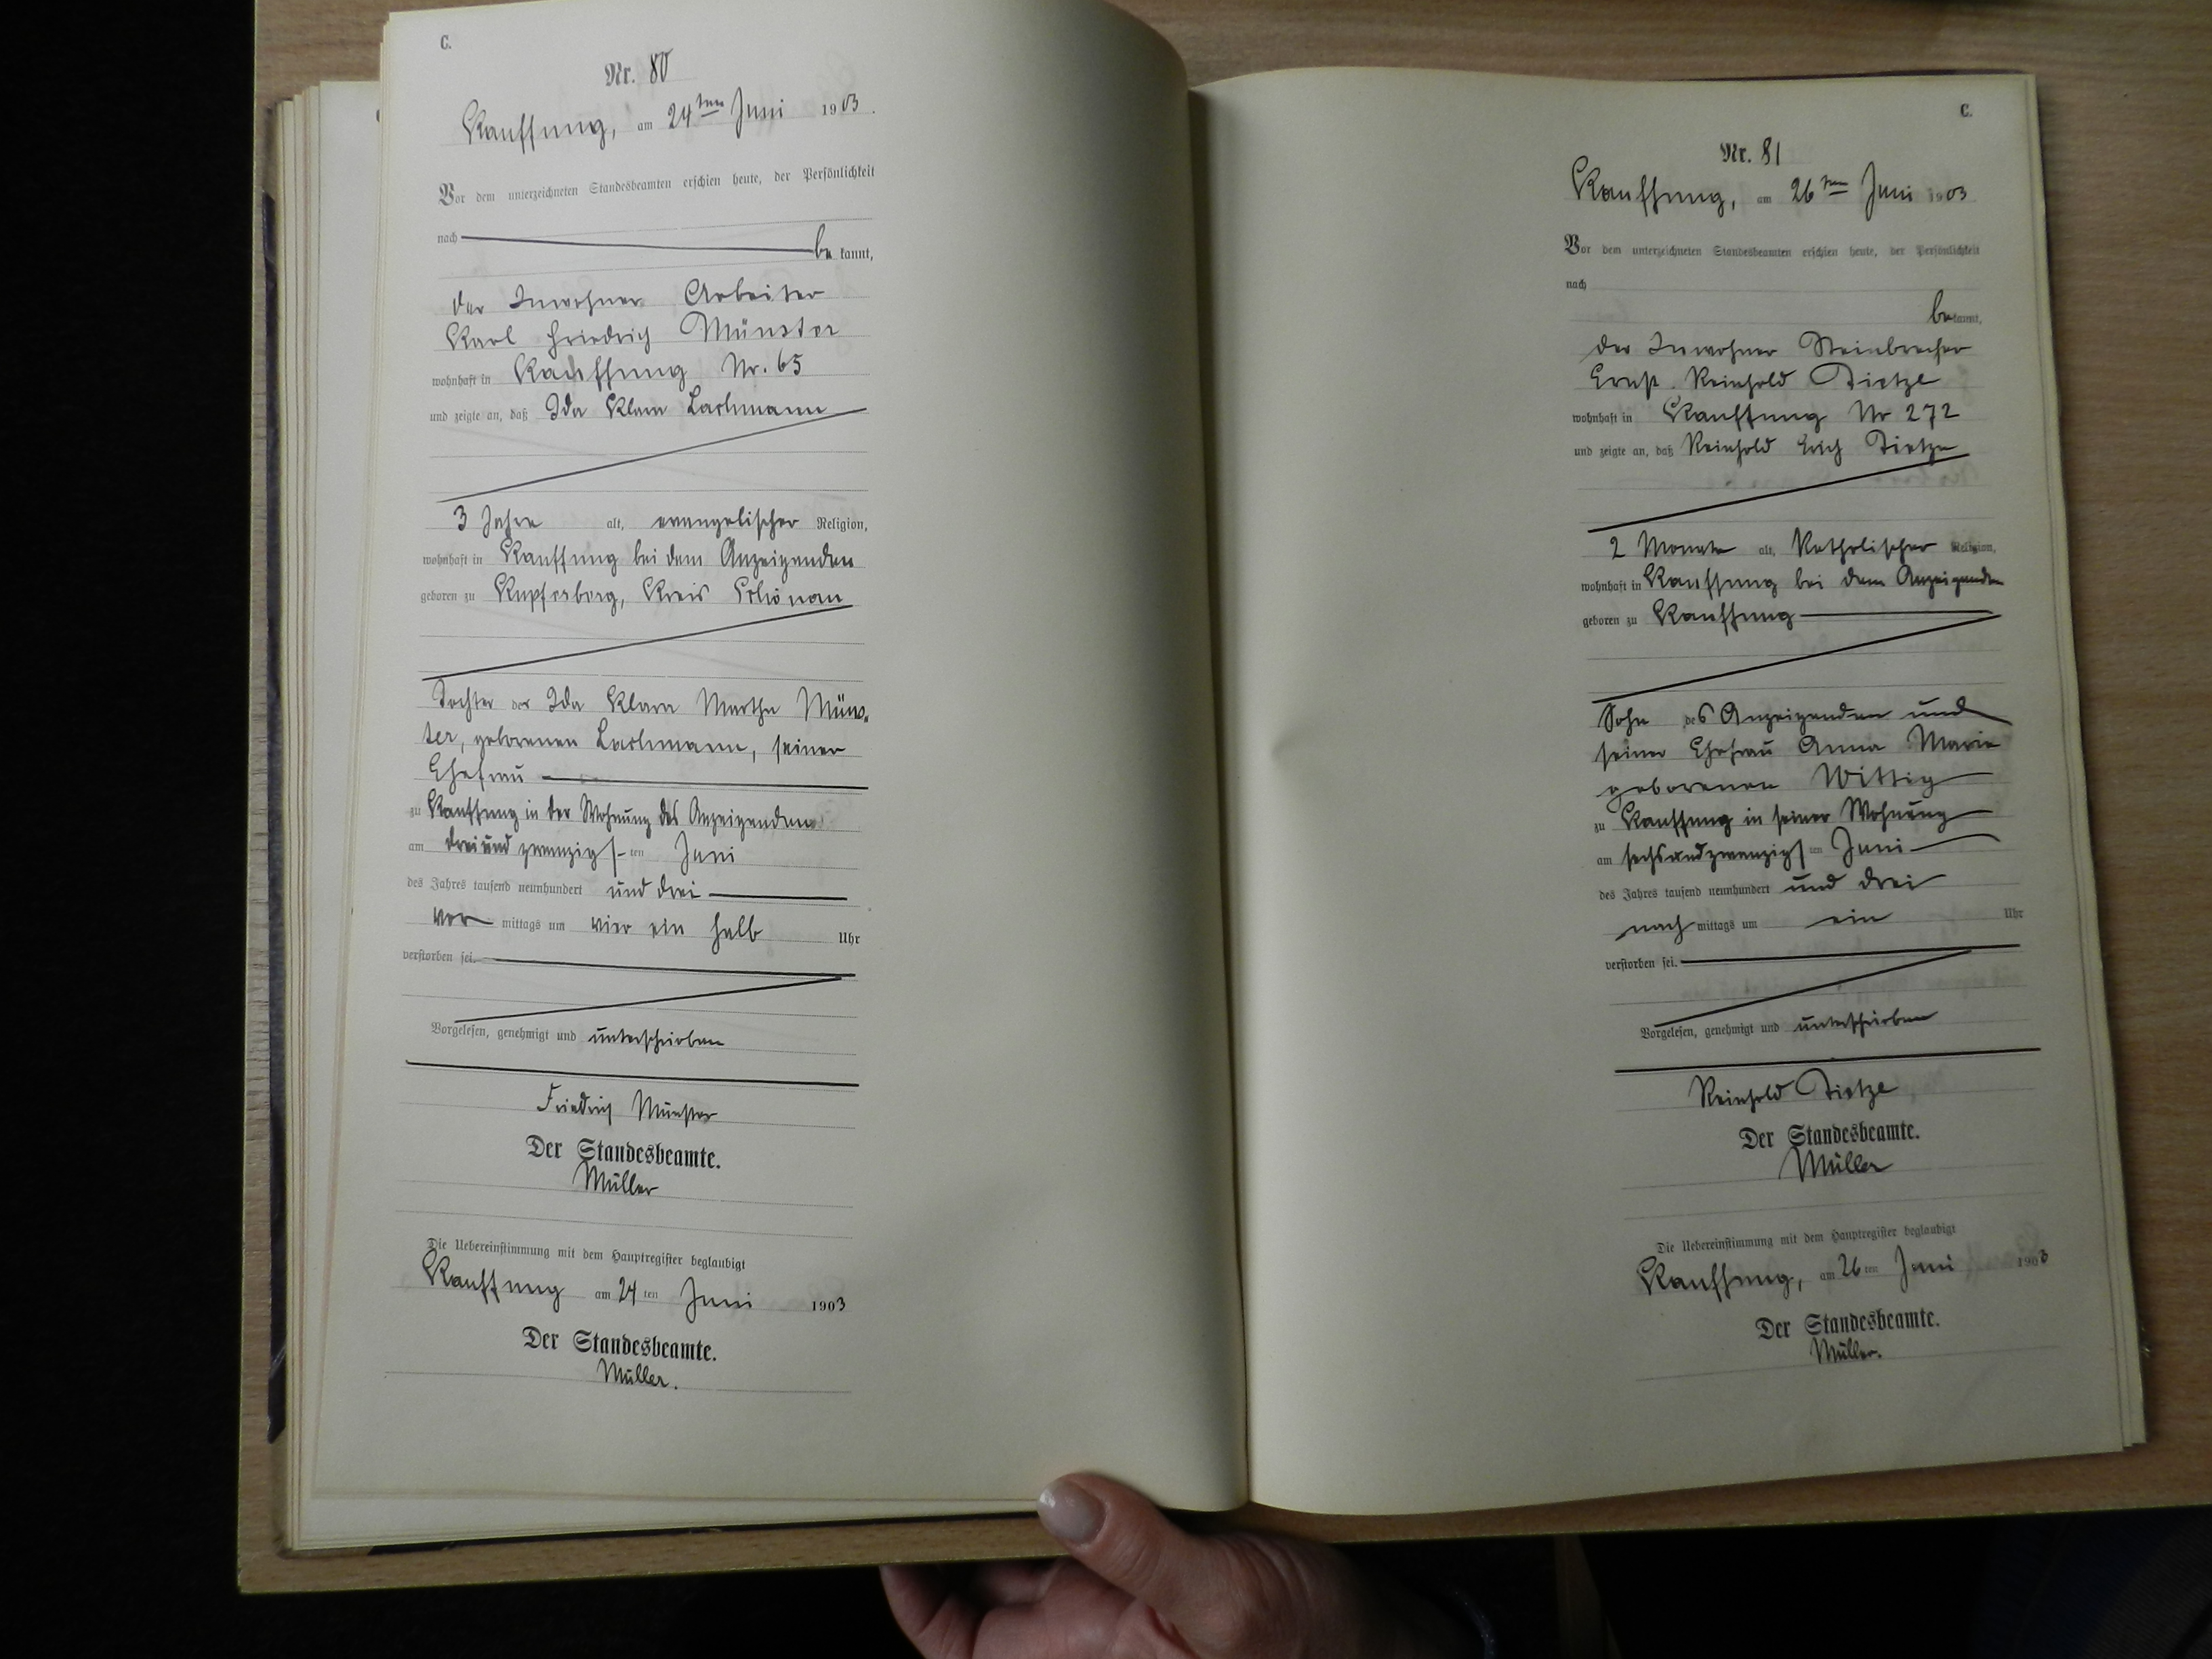 C.
Nr. 80
Kauffung, am 24ten Juni 1903.
Vor dem unterzeichneten Standesbeamten erschien heute, der Persönlichkeit
nach be kannt,
der Inwohner Arbeiter
Karl Friedrich Münster
wohnhaft in Kauffung Nr. 65
und zeigte an, daß Ida Klara Lachmann
3 Jahre alt, evangelischer Religion,
wohnhaft in Kauffung bei dem Anzeigenden
geboren zu Kupferberg, Kreis Schönau
Tochter der Ida Klara Martha Müns-
ter, geborenen Lachmann, seiner
Ehefrau
zu Kauffung in der Wohnung des Anzeigenden
am dreiundzwanzigsten Juni
des Jahres tausend neunhundert und drei
vor mittags um vier ein halb Uhr
verstorben sei.
Vorgelesen, genehmigt und unterschrieben
Friedrich Münster
Der Standesbeamte.
Müller
Die Uebereinstimmung mit dem Hauptregister beglaubigt
Kauffung am 24 ten Juni 1903
Der Standesbeamte.
Müller.
C.
Nr. 81
Kauffung, am 26ten Juni 1903
Vor dem unterzeichneten Standesbeamten erschien heute, der Persönlichkeit
nach
be kannt,
der Inwohner Steinbrecher
Ernst Reinhold Tietze
wohnhaft in Kauffung Nr 272
und zeigte an, daß Reinhold Erich Tietze
2 Monate alt, Katholischer Religion,
wohnhaft in Kauffung bei dem Anzeigenden
geboren zu Kauffung
Sohn des Anzeigenden und
seiner Ehefrau Anna Marie
geborenen Wittig
zu Kauffung in seiner Wohnung
am sechsundzwanzigsten Juni
des Jahres tausend neunhundert und drei
nach mittags um ein Uhr
verstorben sei.
Vorgelesen, genehmigt und unterschrieben
Reinhold Tietze
Der Standesbeamte.
Müller
Die Uebereinstimmung mit dem Hauptregister beglaubigt
Kauffung, am 26 ten Juni 1903
Der Standesbeamte.
Müller.